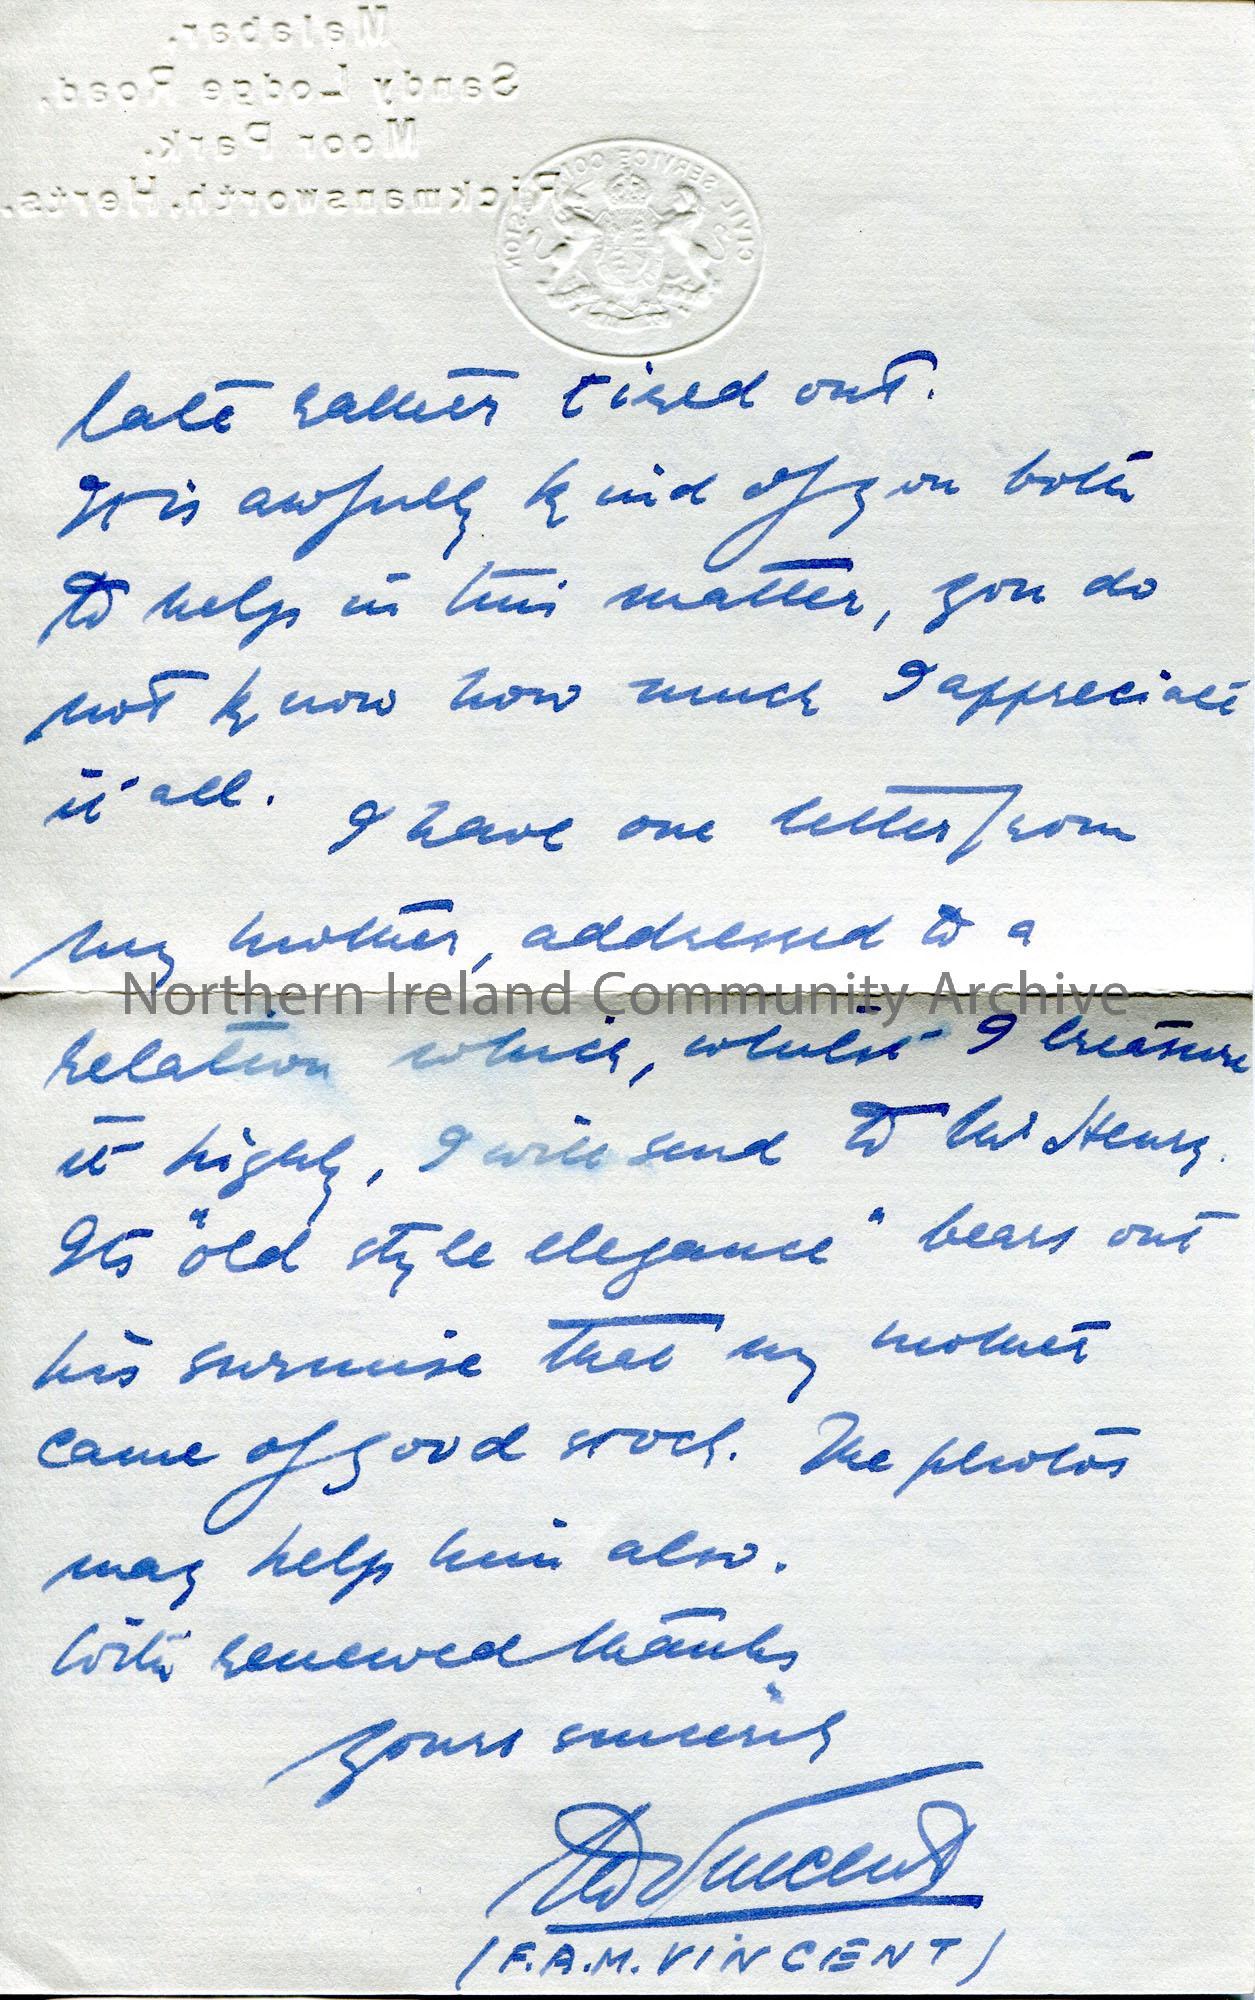 Malabar,
Sandy Lodge Road,
Moor Park,
Rickmansworth, Herts.
CIVIL SERVICE COMMISSION
late rather tired out.
It is awfully kind of you both
to help in this matter, you do
not know how much I appreciate
it all.
I have one letter from
my mother, addressed to a
Northern Ireland Community Archive
relation which, whilst I treasure
it highly, I will send to Mr Henry.
Its "old style elegance" bears out
his surmise that my mother
came of good stock. The photos
may help him also.
With renewed thanks
Yours sincerely
Vincent
(F.A.M. VINCENT)